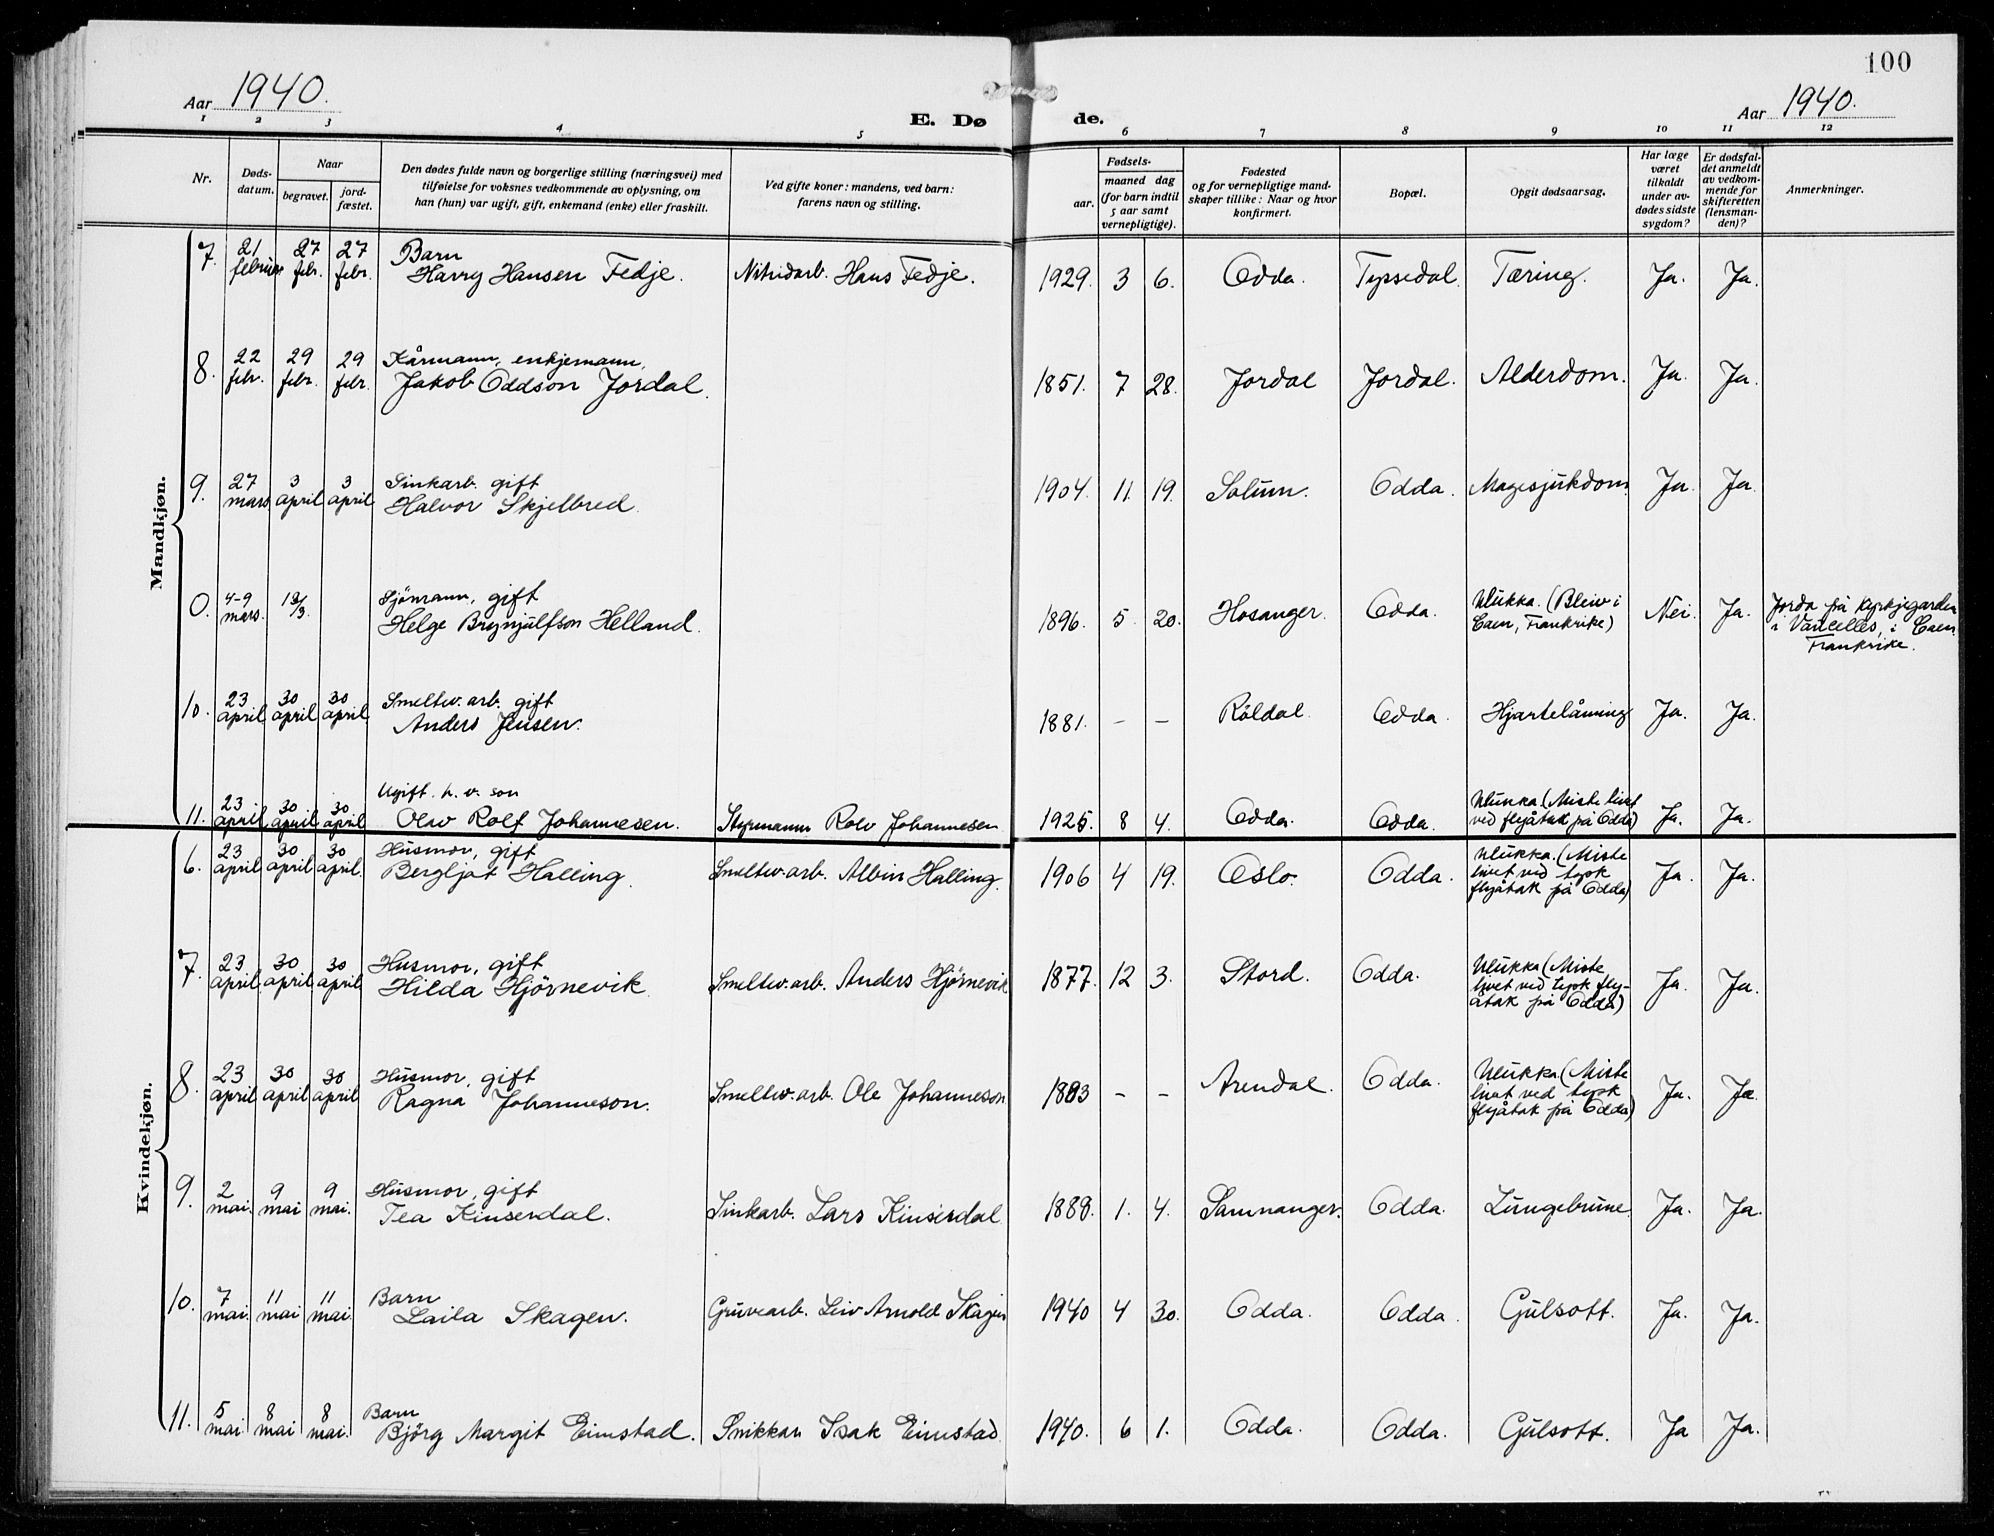 100
Aar 1940.
Aar 1940.
E. Dø
de.
1 2 3 4 5 6 7 8 9 10 11 12
Nr.
Døds-
datum.
Naar
begravet.
jord-
fæstet.
Den dødes fulde navn og borgerlige stilling (næringsvei) med
tilføielse for voksnes vedkommende av oplysning, om
han (hun) var ugift, gift, enkemand (enke) eller fraskilt.
Ved gifte koner: mandens, ved barn:
farens navn og stilling.
Fødsels-
aar.
maaned dag
(for barn indtil
5 aar samt
vernepligtige).
Fødested
og for vernepligtige mand-
skaper tillike: Naar og hvor
konfirmert.
Bopæl.
Opgit dødsaarsag.
Har læge
været
tilkaldt
under av-
dødes sidste
sygdom?
Er dødsfal-
det anmeldt
av vedkom-
mende for
skifteretten
(lensman-
den)?
Anmerkninger.
Mandkjøn.
7. 21 februar 27 febr. 27 febr. Barn
Harry Hansen Fedje. Nitridarb. Hans Fedje. 1929. 3 6. Odda. Tyssedal. Tæring. Ja. Ja.
8. 22 febr. 29 febr. 29 febr. Kårmann, enkjemann.
Jakob Oddson Jordal. 1851. 7 28. Jordal Jordal. Alderdom. Ja. Ja.
9. 27 mars 3 april 3 april Sinkarb. gift
Halvor Skjelbred 1904. 11. 19. Solum. Odda. Magesjukdom. Ja. Ja.
0. 4-9 mars. 13/3. Sjömann, gift
Helge Brynjulfson Helland. 1896. 5. 20. Hosanger. Odda. Ulukka. (Bleiv i
Caen, Frankrike) Nei. Ja. Jorda på kyrkjegarden
i Vaucelles, i Caen
Frankrike.
10. 23 april 30 april 30 april Smeltev. arb. gift
Anders Jensen. 1881. – – Röldal. Odda. Hjartelåming Ja. Ja.
11. 23 april 30 april 30 april Ugift. h. v. son
Olav Rolf Johannesen. Styrmann Rolv Johannesen 1925. 8 4. Odda. Odda. Ulukka (Miste livet
ved flyåtak på Odda) Ja. Ja.
Kvindekjøn.
6. 23 april 30 april 30 april. Husmor, gift
Bergljot Halling. Smeltev. arb. Albin Halling. 1906 4 19. Oslo. Odda. Ulukka. (Miste
livet ved tysk
flyåtak på Odda) Ja. Ja.
7. 23 april. 30 april 30 april Husmor, gift
Hilda Hjörnevik Smeltev. arb. Anders Hjörnevik 1877. 12 3. Stord. Odda. Ulukka (Miste
livet ved tysk fly-
åtak på Odda) Ja. Ja.
8. 23 april 30 april 30 april Husmor, gift
Ragna Johanneson. Smeltev. arb. Ole Johanneson – – Arendal. Odda. Ulukka. (Miste
livet ved tysk
flyåtak på Odda) Ja. Ja.
9. 2 mai. 9 mai 9 mai. Husmor, gift
Tea Kinserdal. Sinkarb. Lars Kinserdal 1889. 1. 4. Samnanger. Odda. Lungebrune Ja. Ja.
10. 7 mai. 11 mai 11 mai. Barn
Laila Skagen. Gruvearb. Leiv Arnold Skagen 1940 4 30. Odda. Odda. Gulsott. Ja. Ja.
11. 5 mai 8 mai 8 mai. Barn
Björg Margit Eimstad. Snikkar Isak Eimstad. 1940. 6 1. Odda. Odda. Gulsott. Ja Ja.